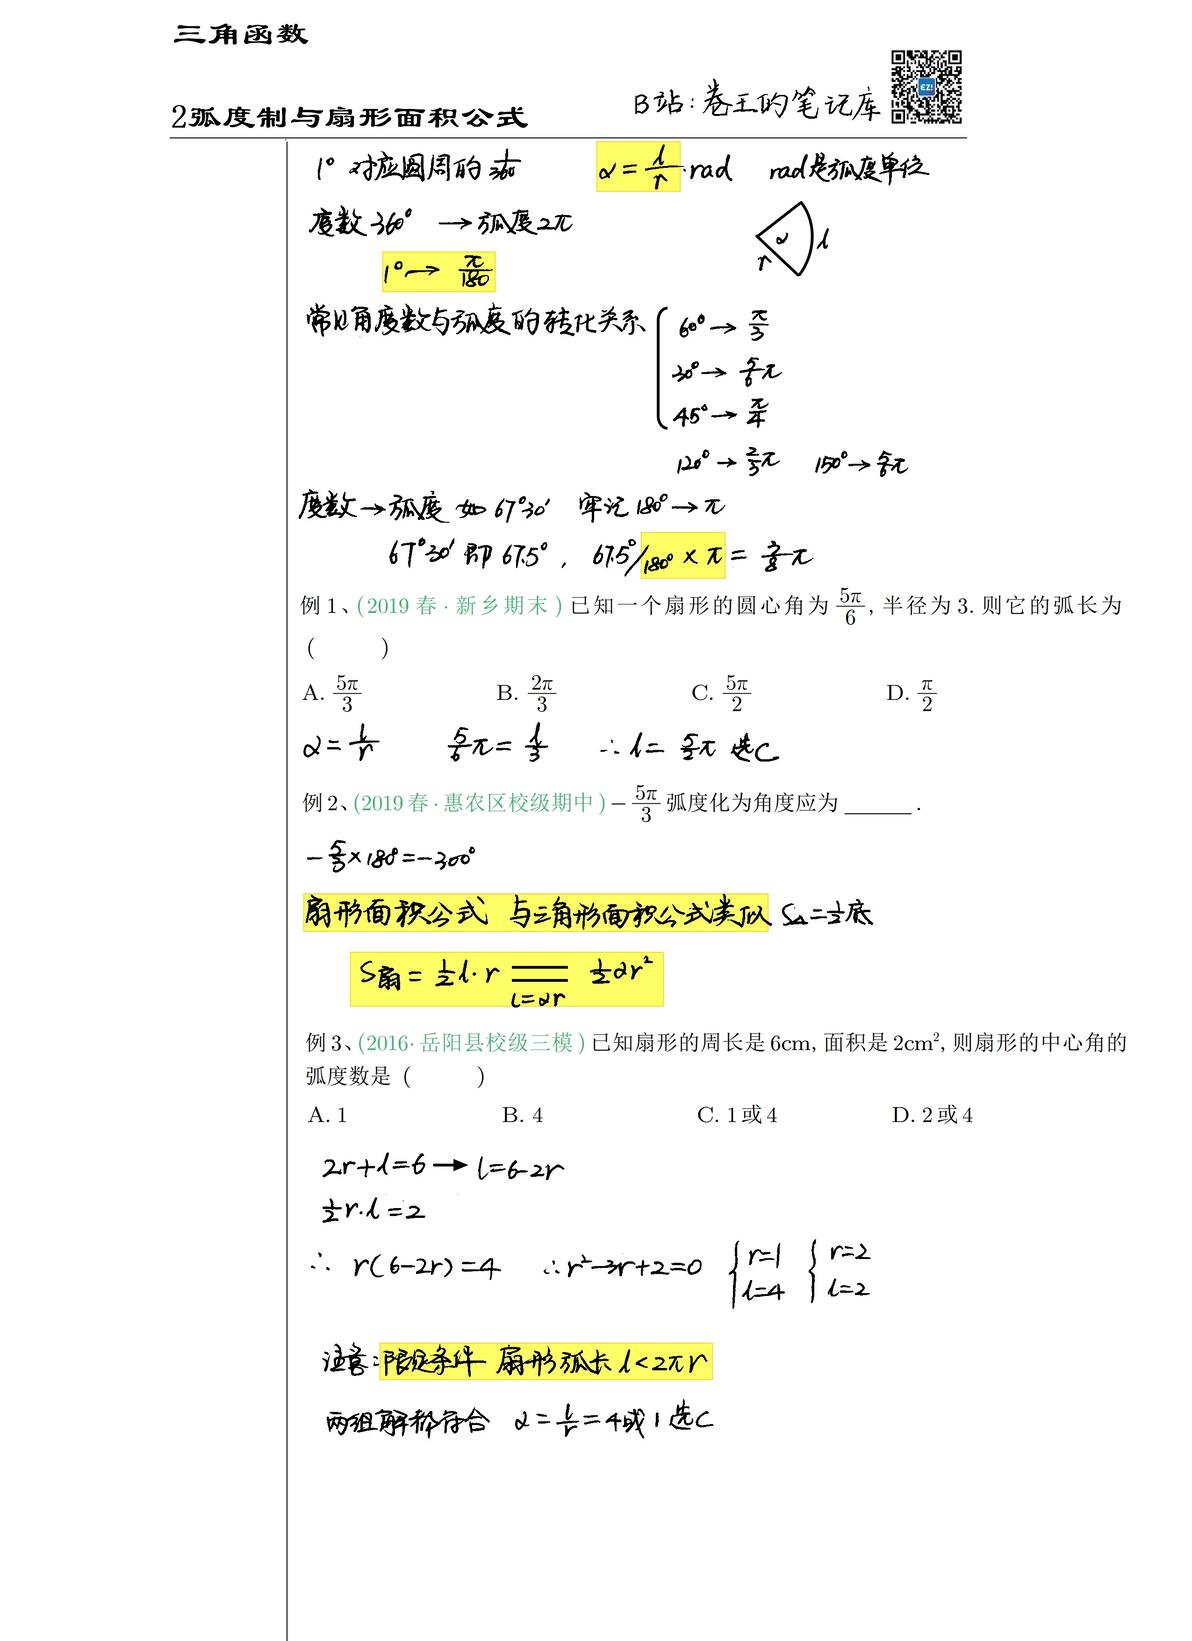 三角函数
B站:卷王的笔记库
2弧度制与扇形面积公式
1° 对应圆周的 1/360 α = l/r · rad rad是弧度单位
度数 360° → 弧度2π
α l r
1° → π/180
常见角度数与弧度的转化关系 { 60° → π/3
30° → 5/6 π
45° → π/4
120° → 2/3 π 150° → 5/6 π
度数 → 弧度 如 67°30′ 牢记 180° → π
67°30′ 即 67.5° , 67.5°/180° × π = 3/8 π
例 1、(2019 春 · 新乡期末 ) 已知一个扇形的圆心角为 5π/6 , 半径为 3. 则它的弧长为
( )
A. 5π/3 B. 2π/3 C. 5π/2 D. π/2
α = l/r 5/6 π = l/3 ∴ l = 5/2 π 选C
例 2、(2019 春 · 惠农区校级期中 ) − 5π/3 弧度化为角度应为 ______ .
− 5/3 × 180° = −300°
扇形面积公式 与三角形面积公式类似 S△ = 1/2 底
S扇 = 1/2 l · r ═ 1/2 αr²
l = αr
例 3、(2016· 岳阳县校级三模 ) 已知扇形的周长是 6cm, 面积是 2cm², 则扇形的中心角的
弧度数是 ( )
A. 1 B. 4 C. 1 或 4 D. 2 或 4
2r + l = 6 → l = 6-2r
1/2 r · l = 2
∴ r(6-2r) = 4 ∴ r²-3r+2=0 { r=1 l=4 { r=2 l=2
注意: 限定条件 扇形弧长 l < 2πr
两组解都符合 α = l/r = 4或1 选C